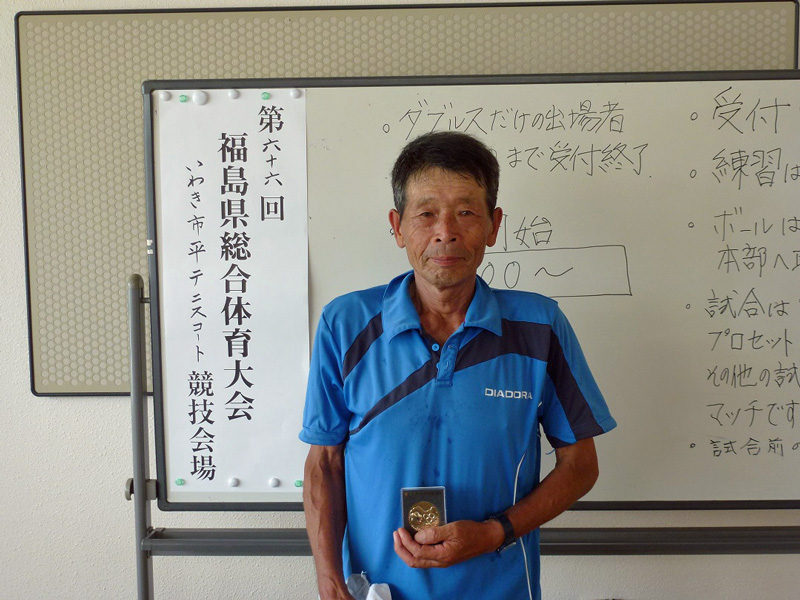 第六十六回
福島県総合体育大会
いわき市平テニスコート競技会場
。ダブルスだけの出場者
まで受付終了
開始
00～
。受付
。練習は
。ボールは
本部へ
。試合は
プロセット
その他の試
マッチです
。試合前の
DIADORA